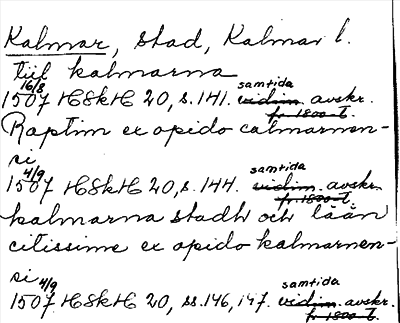 Kalmar, stad, Kalmar l.
till kalmarna
16/8 samtida
1507 HSkH 20, s. 141. vidim. avskr.
fr. 1800-t.
Raptim ex opido calmarnen-
si
4/9 samtida
1507 HSkH 20, s. 144. vidim. avskr.
fr. 1800-t.
kalmarna stadh och lään
citissime ex opido kalmarnen-
si
4/9 samtida
1507 HSkH 20, ss. 146, 147. vidim. avskr.
fr. 1800-t.